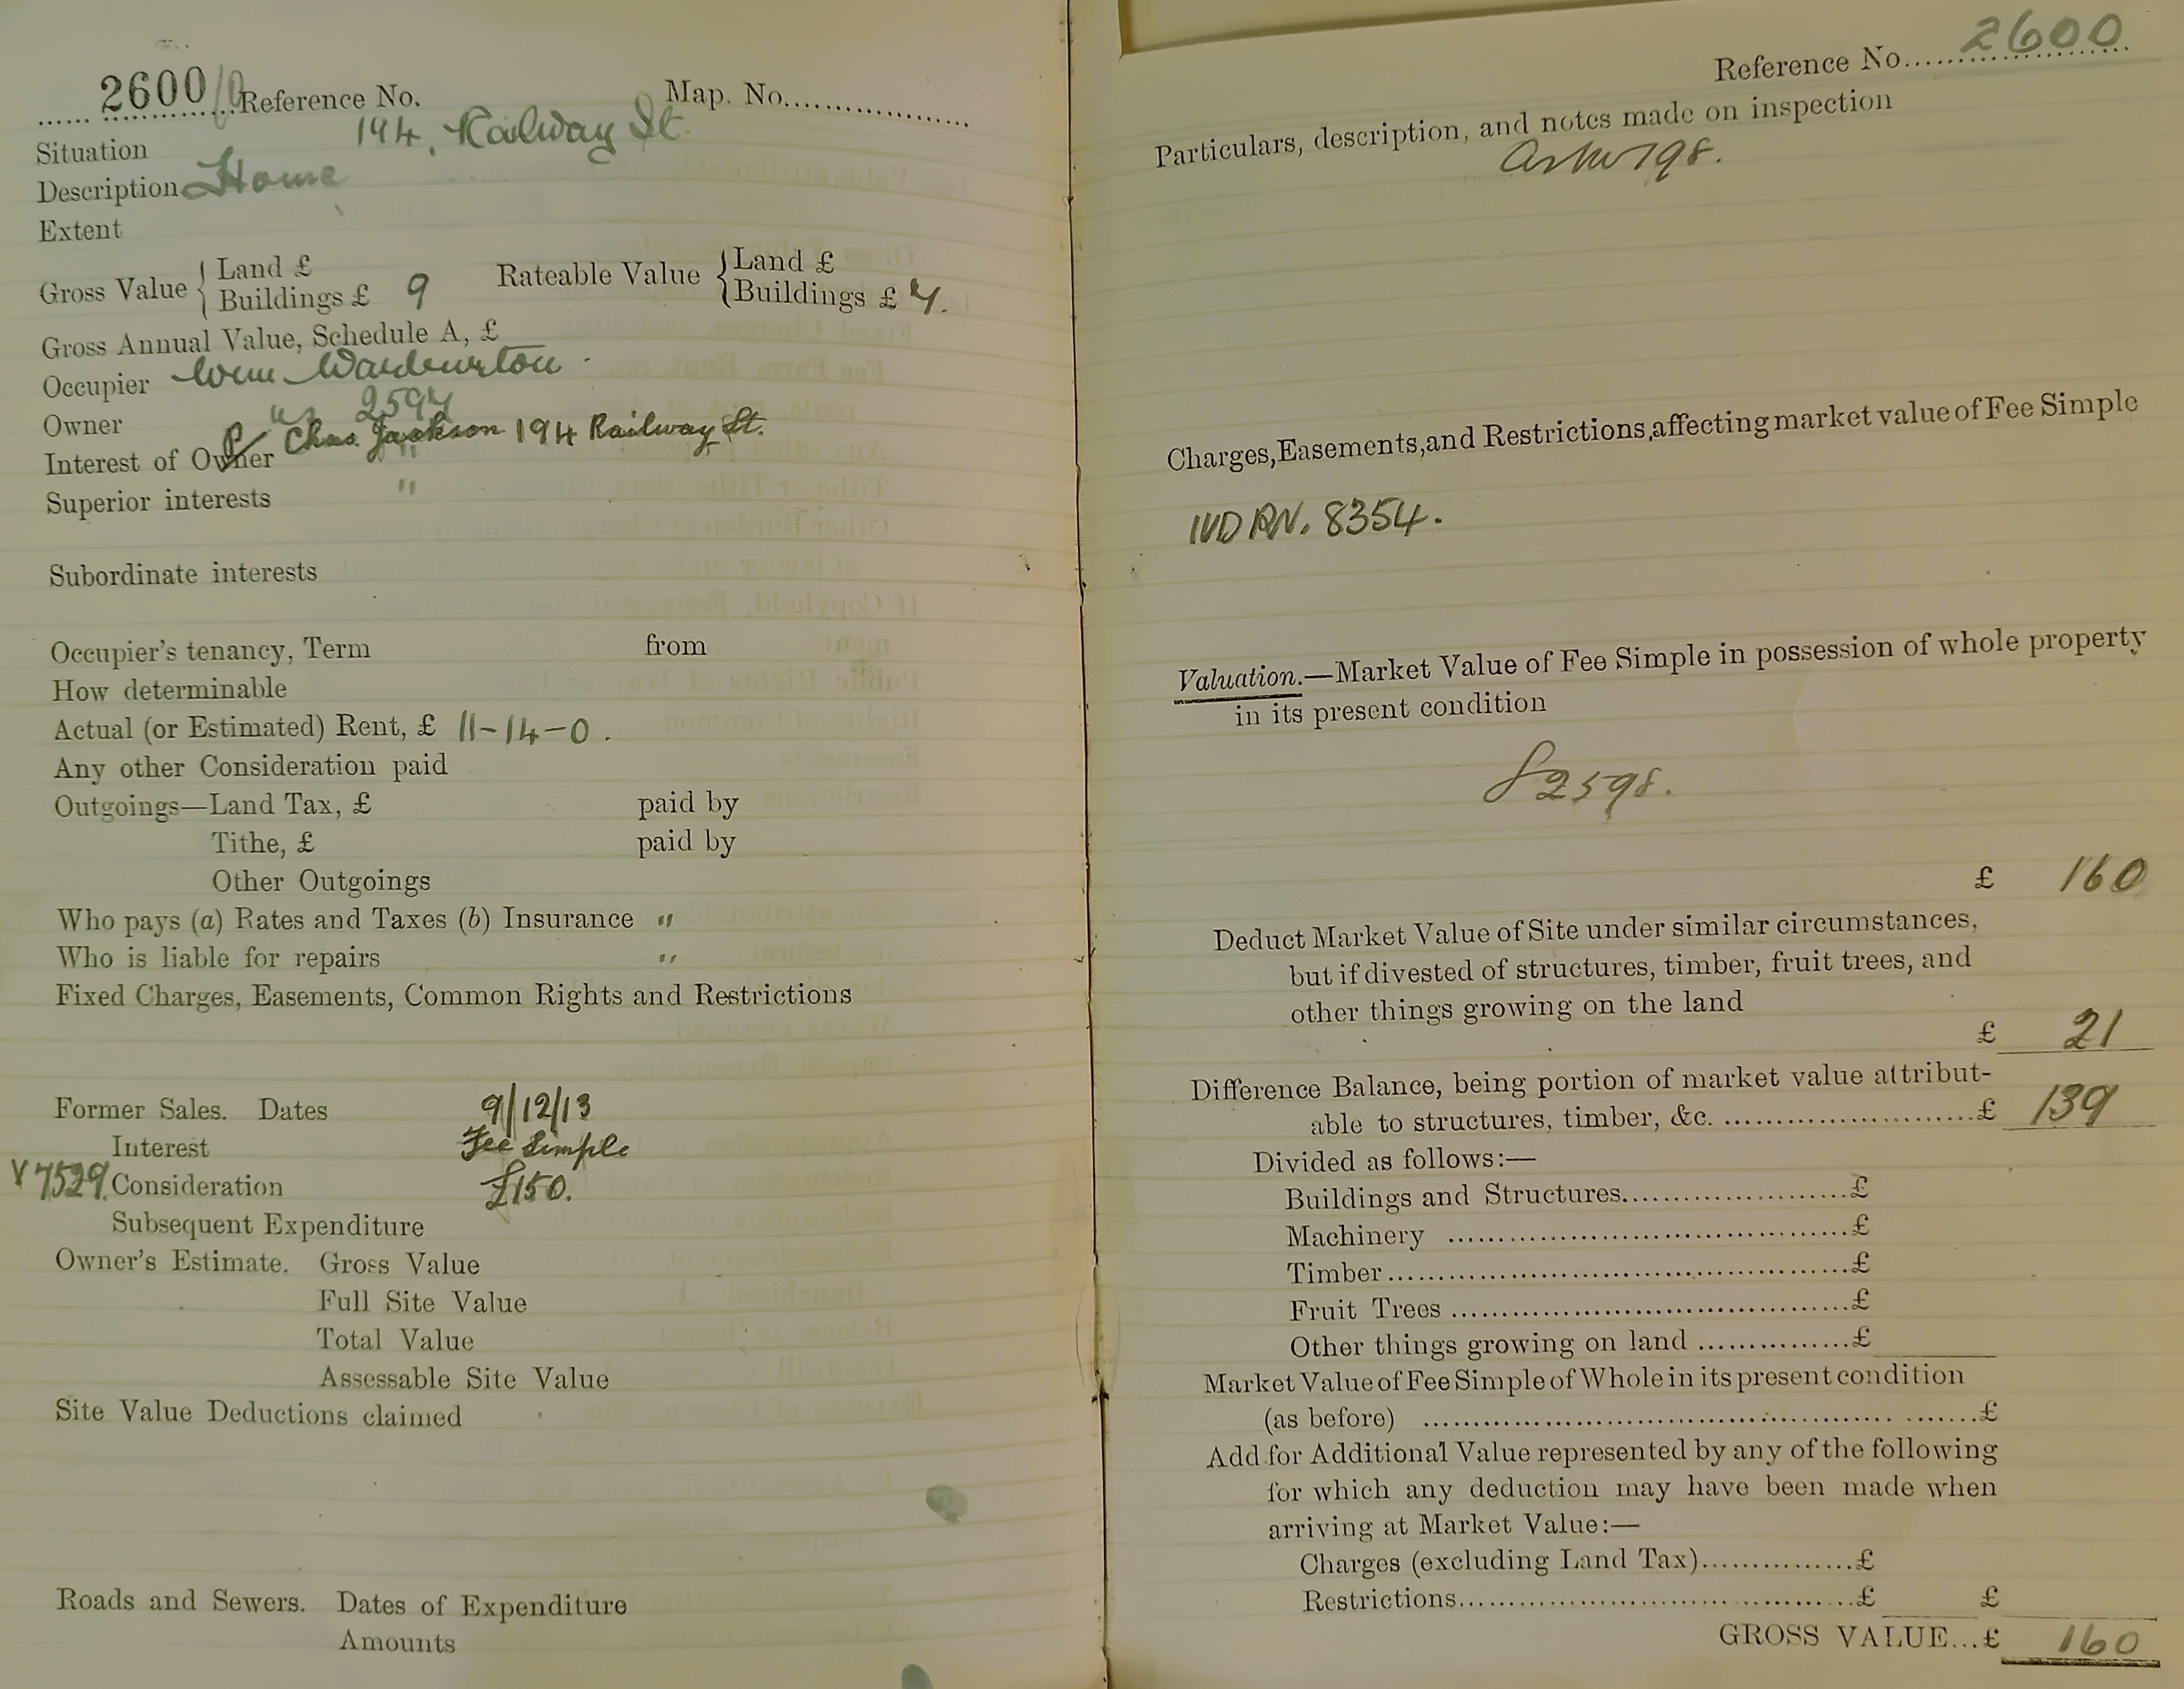 2600 Reference No. Map. No.
Situation 194, Railway St
Description House
Extent
Gross Value { Land £
Buildings £ 9
Rateable Value { Land £
Buildings £ 7.
Gross Annual Value, Schedule A, £
Occupier Wm Warburton
Owner as 2594
P/ Chas. Jackson 194 Railway St.
Interest of Owner "
Superior interests "
Subordinate interests
Occupier's tenancy, Term from
How determinable
Actual (or Estimated) Rent, £ 11-14-0.
Any other Consideration paid
Outgoings—Land Tax, £ paid by
Tithe, £ paid by
Other Outgoings
Who pays (a) Rates and Taxes (b) Insurance "
Who is liable for repairs "
Fixed Charges, Easements, Common Rights and Restrictions
Former Sales. Dates 9/12/13
Interest Fee Simple
V 7529. Consideration £150.
Subsequent Expenditure
Owner's Estimate. Gross Value
Full Site Value
Total Value
Assessable Site Value
Site Value Deductions claimed
Roads and Sewers. Dates of Expenditure
Amounts
Reference No. 2600
Particulars, description, and notes made on inspection
Charges, Easements, and Restrictions, affecting market value of Fee Simple
IVD RN. 8354.
Valuation.—Market Value of Fee Simple in possession of whole property
in its present condition
2598.
£ 160
Deduct Market Value of Site under similar circumstances,
but if divested of structures, timber, fruit trees, and
other things growing on the land
£ 21
Difference Balance, being portion of market value attribut-
able to structures, timber, &c. £ 139
Divided as follows:—
Buildings and Structures £
Machinery £
Timber £
Fruit Trees £
Other things growing on land £
Market Value of Fee Simple of Whole in its present condition
(as before) £
Add for Additional Value represented by any of the following
for which any deduction may have been made when
arriving at Market Value:—
Charges (excluding Land Tax) £
Restrictions £ £
GROSS VALUE...£ 160